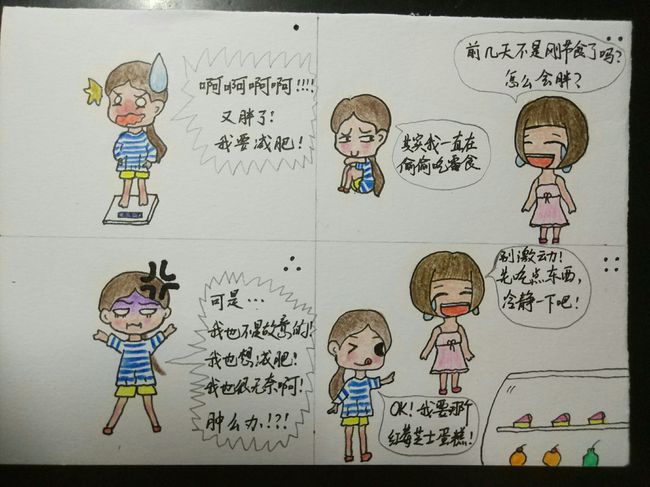 啊啊啊啊!!!!
又胖了!
我要减肥!
前几天不是刚节食了吗?
怎么会胖?
其实我一直在
偷偷吃零食
可是…
我也不是故意的!
我也想减肥!
我也很无奈啊!
肿么办!?!
别激动!
先吃点东西,
冷静一下吧!
OK!我要那个
红莓芝士蛋糕!